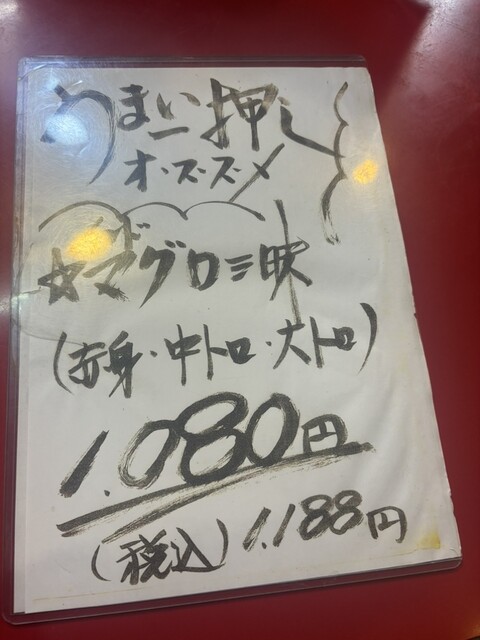 うまい押し
オ・ス・ス・メ
☆マグロ三昧
(赤身・中トロ・大トロ)
1.080円
(税込) 1.188円